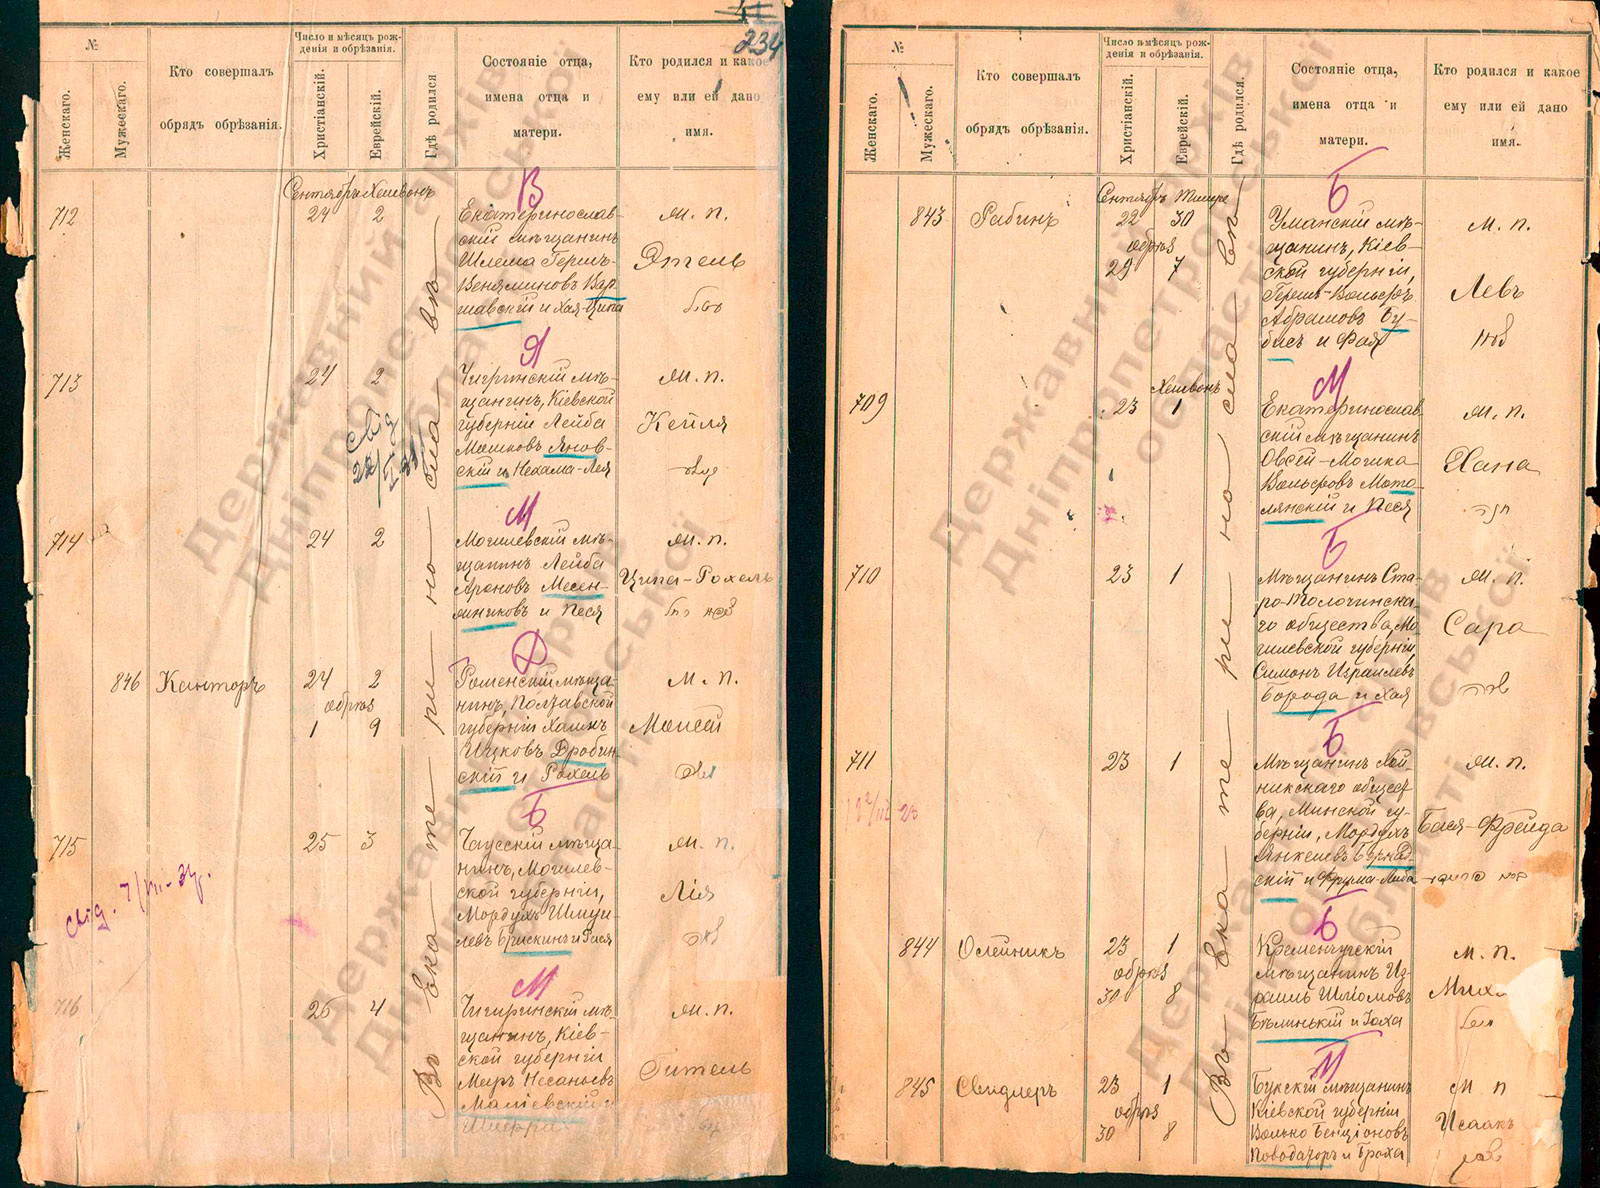 234
№
Женскаго.
Мужескаго.
Кто совершалъ
обрядъ обрѣзанія.
Число и мѣсяцъ рож-
денія и обрѣзанія.
Христіанскій.
Еврейскій.
Гдѣ родился
Состояніе отца,
имена отца и
матери.
Кто родился и какое
ему или ей дано
имя.
Въ Екатеринославѣ
Сентябрь Хешвонъ
В
712
24 2
Екатеринослав-
скій мѣщанинъ
Шлема Гершъ-
Веняминовъ Вар-
шавскій и Хая-Ципа
м. п.
Этель
Я
713
24 2
Чигринскій мѣ-
щанинъ, Кіевской
губерніи Лейба
Мошковъ Янов-
скій и Нехама-Лея
м. п.
Кейля
М
714
24 2
Могилевскій мѣ-
щанинъ Лейба
Ароновъ
и Песя
м. п.
Ципа-Рохель
Д
846
Канторъ
24 2
обрѣз
1 9
Роменскій мѣща-
нинъ, Полтавской
губерніи Хаимъ
Ицковъ Дробин-
скій и Рохель
м. п.
Моисей
Б
715
25 3
Чаусскій мѣща-
нинъ, Могилев-
ской губерніи,
Мордухъ Шмуи-
левъ Брискинъ и Гася
м. п.
Лія
М
716
26 4
Чигиринскій мѣ-
щанинъ, Кіев-
ской губерніи
Меиръ
Маліевскій и
м. п.
Гитель
№
Женскаго.
Мужескаго.
Кто совершалъ
обрядъ обрѣзанія.
Число и мѣсяцъ рож-
денія и обрѣзанія.
Христіанскій.
Еврейскій.
Гдѣ родился.
Состояніе отца,
имена отца и
матери.
Кто родился и какое
ему или ей дано
имя.
Въ Екатеринославѣ
Сентябрь Тишре
Б
843
Рабинъ
22 30
обрѣз
29 7
Уманскій мѣ-
щанинъ, Кіев-
ской губерніи,
Гершъ-Вольфъ
Абрамовъ Бу-
бисъ и Фая
м. п.
Левъ
М
709
Хешвонъ
23 1
Екатеринослав-
скій мѣщанинъ
Овсей-Мошка
Вольфовъ Мото-
лянскій и Песя
м. п.
Хана
Б
710
23 1
Мѣщанинъ Ста-
ро-Толочинска-
го общества, Мо-
гилевской губерніи,
Симонъ Израилевъ
Борода и Хая
м. п.
Сара
Б
711
23 1
Мѣщанинъ Хой-
никскаго общест-
ва, Минской гу-
берніи, Мордухъ
Янкелевъ Бернад-
скій и Фрума-Либа
м. п.
Бася-Фрейда
Б
844
Олейникъ
23 1
обрѣз
30 8
Кременчугскій
мѣщанинъ Из-
раиль Шліомовъ
Бѣлинькій и Іоха
м. п.
Мих
М
845
Свидлеръ
23 1
обрѣз
30 8
Букскій мѣщанинъ
Кіевской губерніи
Волько Бенціоновъ
и Броха
м п
Исаакъ
Державний архів
Дніпропетровської
області